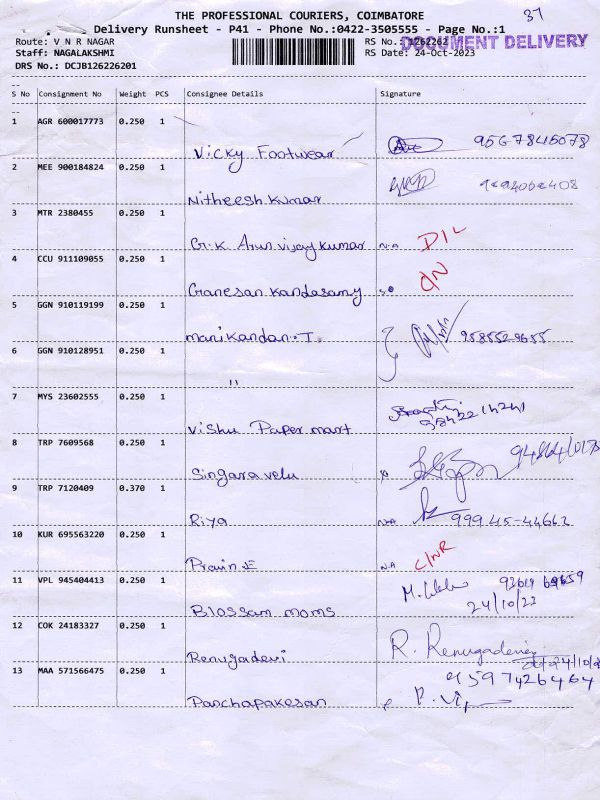 THE PROFESSIONAL COURIERS, COIMBATORE
37
Delivery Runsheet - P41 - Phone No.:0422-3505555 - Page No.:1
Route: V N R NAGAR
RS No.: 1262262
DOCUMENT DELIVERY
Staff: NAGALAKSHMI
RS Date: 24-Oct-2023
DRS No.: DCJB126226201
S No Consignment No Weight PCS Consignee Details Signature
1 AGR 600017773 0.250 1
Vicky Footwear 9567845078
2 MEE 900184824 0.250 1
Nitheesh Kumar
3 MTR 2380455 0.250 1
G.K. Arun vijay kumar N.A D/L
4 CCU 911109055 0.250 1
Ganesan Kandasamy
5 GGN 910119199 0.250 1
Manikandan.T 9585529655
6 GGN 910128951 0.250 1
"
7 MYS 23602555 0.250 1
Vishu Paper mart
8 TRP 7609568 0.250 1
Singara velu
9 TRP 7120409 0.370 1
Riya N.A 99945-44662
10 KUR 695563220 0.250 1
Pravin N.A
11 VPL 945404413 0.250 1
Blossam moms 24/10/23
12 COK 24183327 0.250 1
Renugadevi R. Renugadevi
13 MAA 571566475 0.250 1
9597426464
Panchapakesan